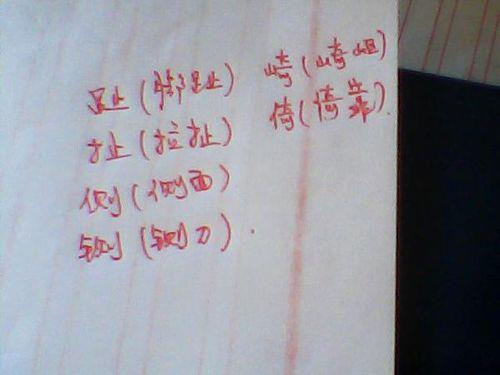 趾（脚趾）
扯（拉扯）
侧（侧面）
铡（铡刀）.
崎（崎岖）
倚（倚靠）.